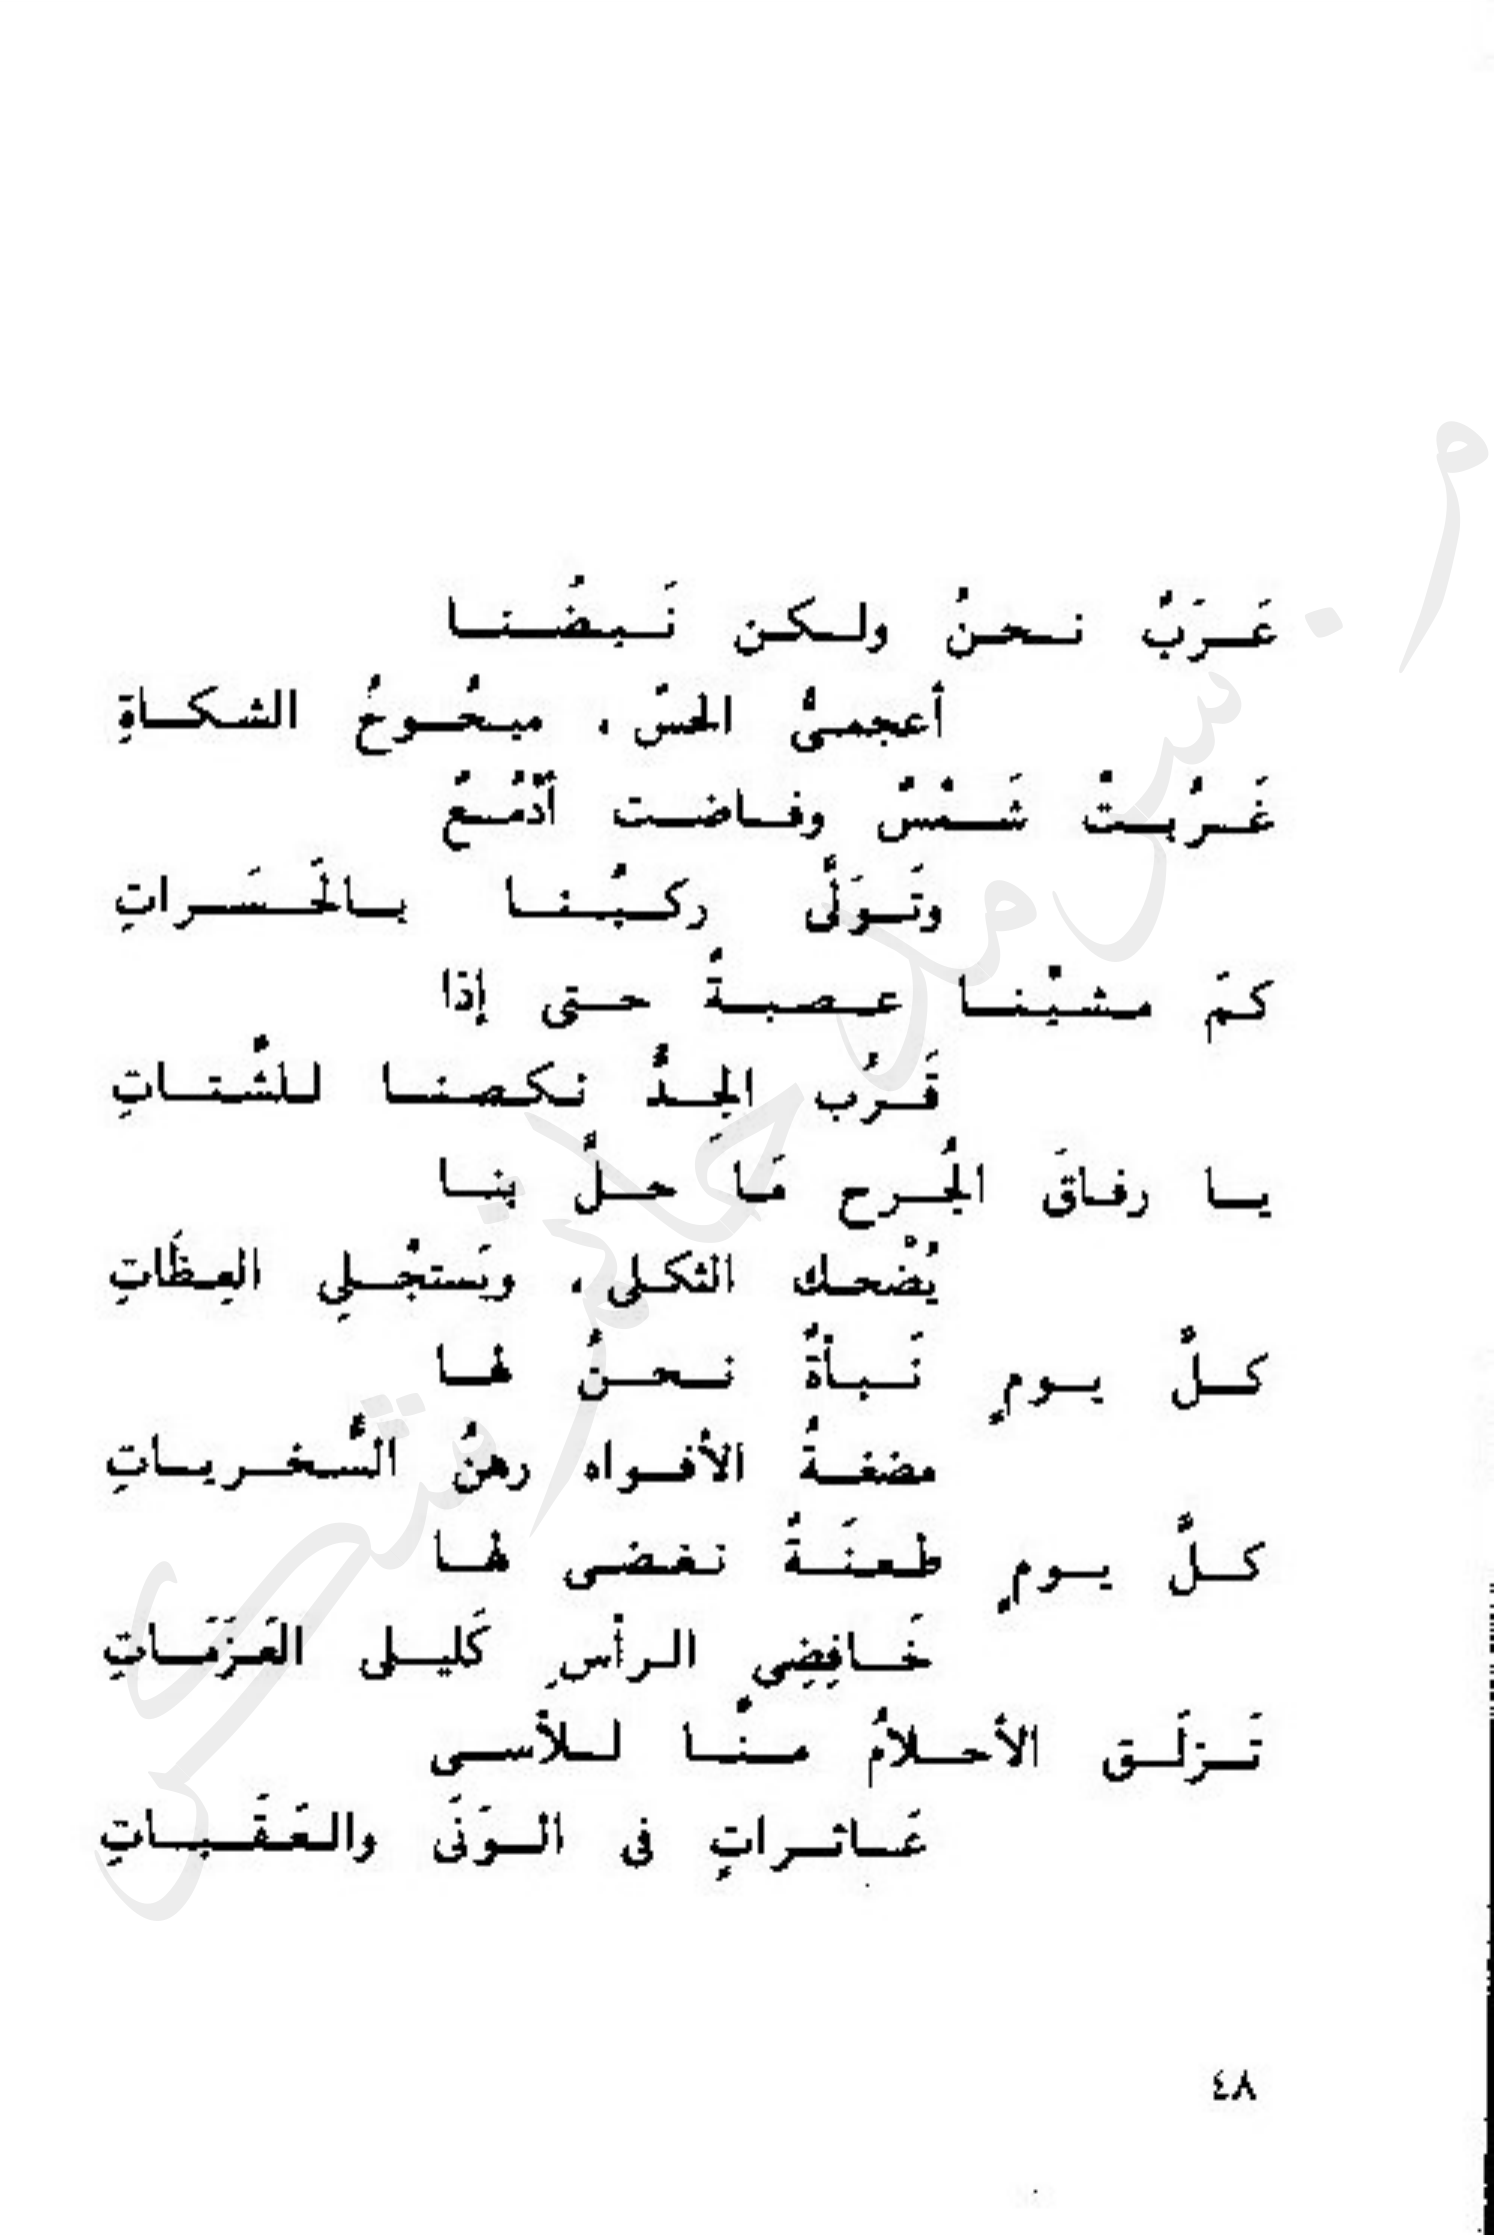 عَرَبٌ نحنُ ولكن نَبضُنا
أعجمىُّ الحسّ ، مبحُوحُ الشكاةِ
غَرُبتْ شَمْسٌ وفاضت أدْمُعٌ
وتَوَلَّى ركبُنا بالحَسَراتِ
كمَ مشيْنا عصبةً حتى إذا
قَرُب الجِدُّ نكصنا للشَّتاتِ
يا رفاقَ الجُرح مَا حلَّ بنا
يُضْحك الثكلى ، ويَستجْلِى العِظَاتِ
كلَّ يومٍ نَبأةٌ نحنُ لها
مضغةُ الأفواه رهنُ السُّخرياتِ
كلَّ يومٍ طعنَةٌ نغضى لها
خَافِضِى الرأسِ كَليلى العَزَمَاتِ
تَزلَق الأحلامُ منَّا للأسى
عَاثراتٍ فى الوَنَى والعَقَباتِ
٤٨